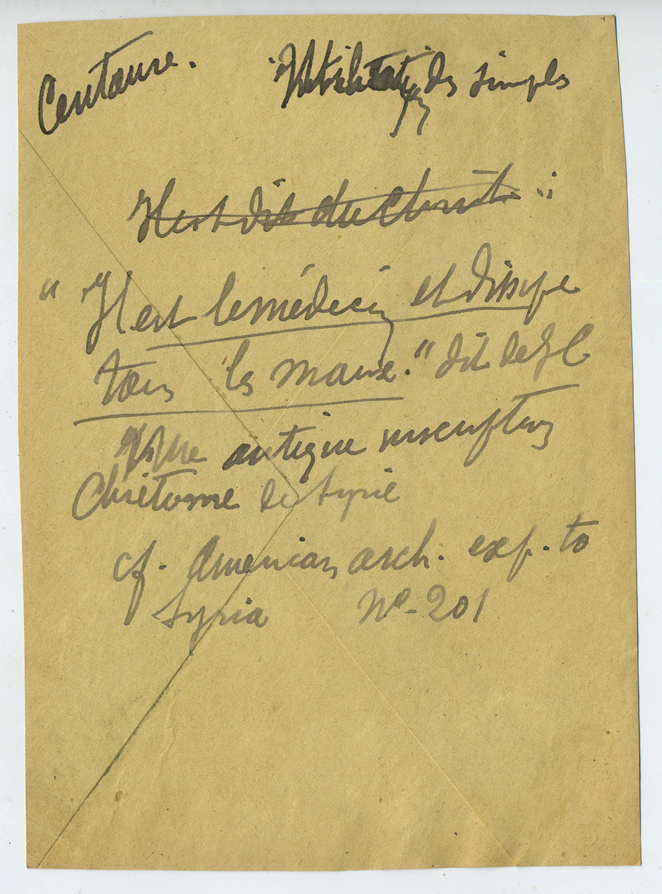 Centaure. Utilisation des simples
Il est dit du Christ :
" Il est le médecin et dissipe
tous les maux." dit de J C
une antique inscription
Chrétienne de Syrie
cf. American arch. exp. to
Syria No-201